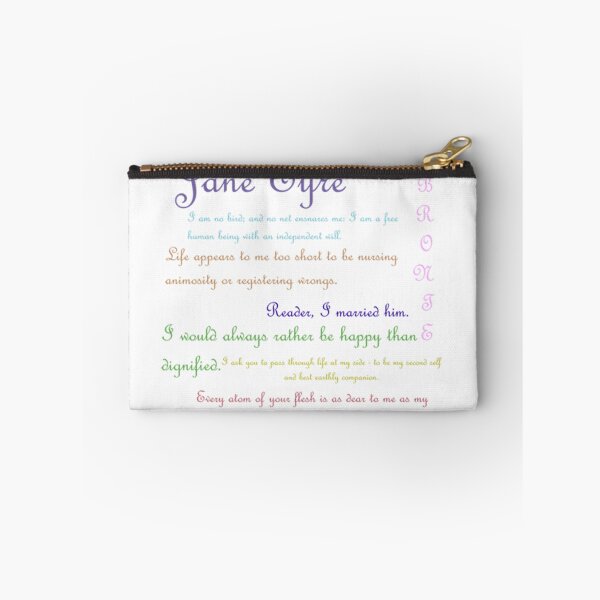 Jane Eyre
I am no bird; and no net ensnares me: I am a free
human being with an independent will.
Life appears to me too short to be nursing
animosity or registering wrongs.
Reader, I married him.
I would always rather be happy than
dignified.
I ask you to pass through life at my side - to be my second self
and best earthly companion.
Every atom of your flesh is as dear to me as my
BRONTE